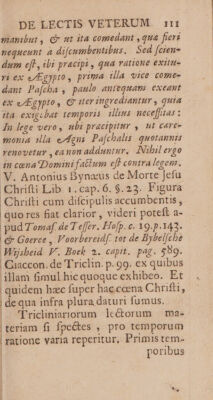 DE LECTIS VETERUM 111
manibus, & ut ita comedant, qua fieri
nequeunt a discumbentibus. Sed scien-
dum est, ibi præcipi, qua ratione exitu-
ri ex Ægypto, prima illa vice come-
dant Pascha, paulo antequam exeant
ex Ægypto, & iter ingrediantur, quia
ita exigebat temporis illius necessitas:
In lege vero, ubi præcipitur, ut cære-
monia illa Agni Paschalis quotannis
renovetur, ea non adduntur. Nihil ergo
in cœna Domini factum est contra legem.
V. Antonius Bynæus de Morte Jesu
Christi Lib 1. cap. 6. §. 23. Figura
Christi cum discipulis accumbentis,
quo res fiat clarior, videri potest a-
pud Tomas de Tesser. Hosp. c. 19. p. 143.
& Goeree, Voorbereids. tot de Bybelsche
Wijsheid V. Boek 2. capit. pag. 589.
Ciaccon. de Triclin. p. 99. ex quibus
illam simul hic quoque exhibeo. Et
quidem hæc super hac cœna Christi,
de qua infra plura daturi sumus.
Tricliniariorum lectorum ma-
teriam si spectes, pro temporum
ratione varia reperitur. Primis tem-
poribus